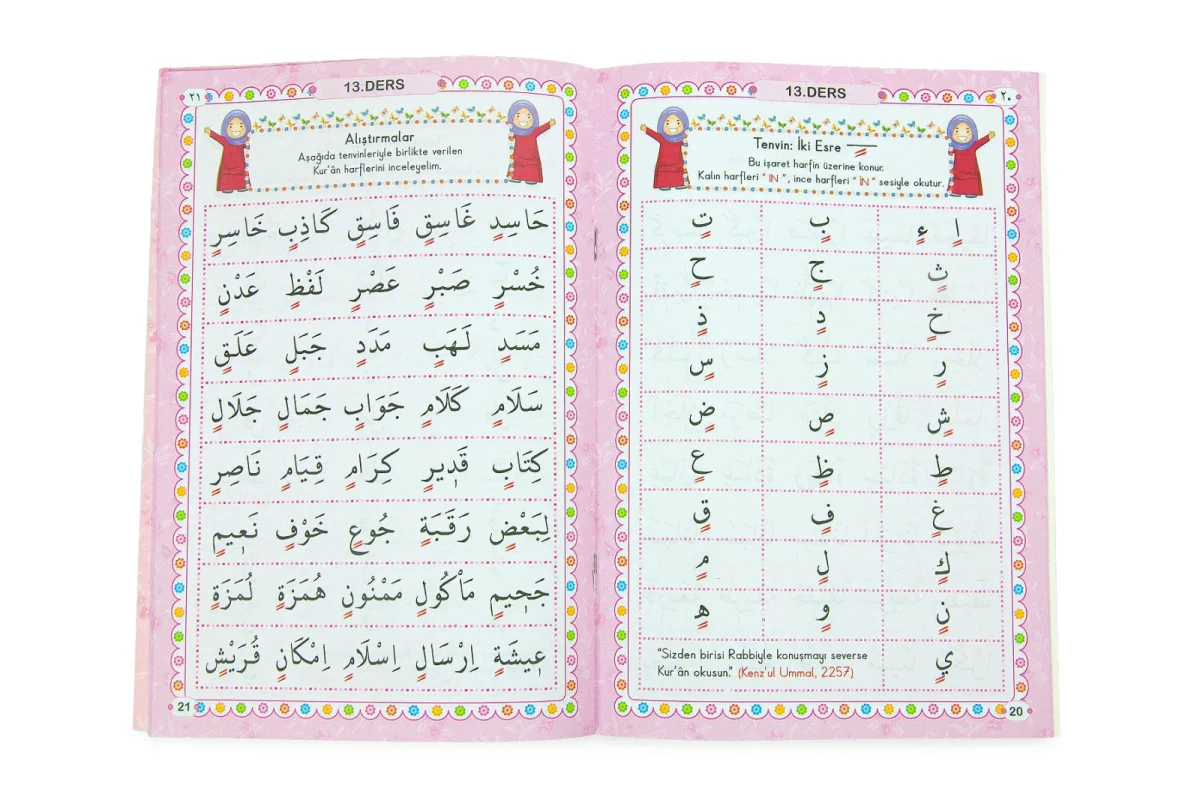 13.DERS
٢٠
Tenvin: İki Esre ـٍـ
Bu işaret harfin üzerine konur.
Kalın harfleri “ IN ”, ince harfleri “ İN ” sesiyle okutur.
اٍ ءٍ بٍ تٍ
ثٍ جٍ حٍ
خٍ دٍ ذٍ
رٍ زٍ سٍ
شٍ صٍ ضٍ
طٍ ظٍ عٍ
غٍ فٍ قٍ
كٍ لٍ مٍ
نٍ وٍ هٍ
يٍ
“Sizden birisi Rabbiyle konuşmayı severse
Kur’ân okusun.” (Kenz'ul Ummal, 2257)
20
13.DERS
٢١
Alıştırmalar
Aşağıda tenvinleriyle birlikte verilen
Kur’ân harflerini inceleyelim.
حَاسِدٍ غَاسِقٍ فَاسِقٍ كَاذِبٍ خَاسِرٍ
خُسْرٍ صَبْرٍ عَصْرٍ لَفْظٍ عَدْنٍ
مَسَدٍ لَهَبٍ مَدَدٍ جَبَلٍ عَلَقٍ
سَلَامٍ كَلَامٍ جَوَابٍ جَمَالٍ جَلَالٍ
كِتَابٍ قَدِيرٍ كِرَامٍ قِيَامٍ نَاصِرٍ
لِبَعْضٍ رَقَبَةٍ جُوعٍ خَوْفٍ نَعِيمٍ
جَحِيمٍ مَاْكُولٍ مَمْنُونٍ هُمَزَةٍ لُمَزَةٍ
عِيشَةٍ اِرْسَالٍ اِسْلَامٍ اِمْكَانٍ قُرَيْشٍ
21